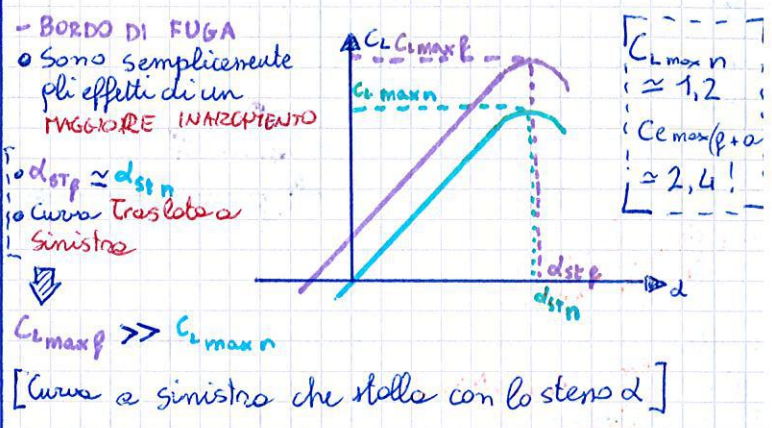 - BORDO DI FUGA
o Sono semplicemente
gli effetti di un
MAGGIORE INARCAMENTO
o αSTf ≃ αSTn
o curva Traslata a
Sinistra
CLmaxf >> CLmaxn
[Curva a sinistra che stalla con lo stesso α]
CL
CLmaxf
CLmaxn
αSTf
αSTn
α
CLmaxn
≃ 1,2
CLmax(f+a
≃ 2,4!